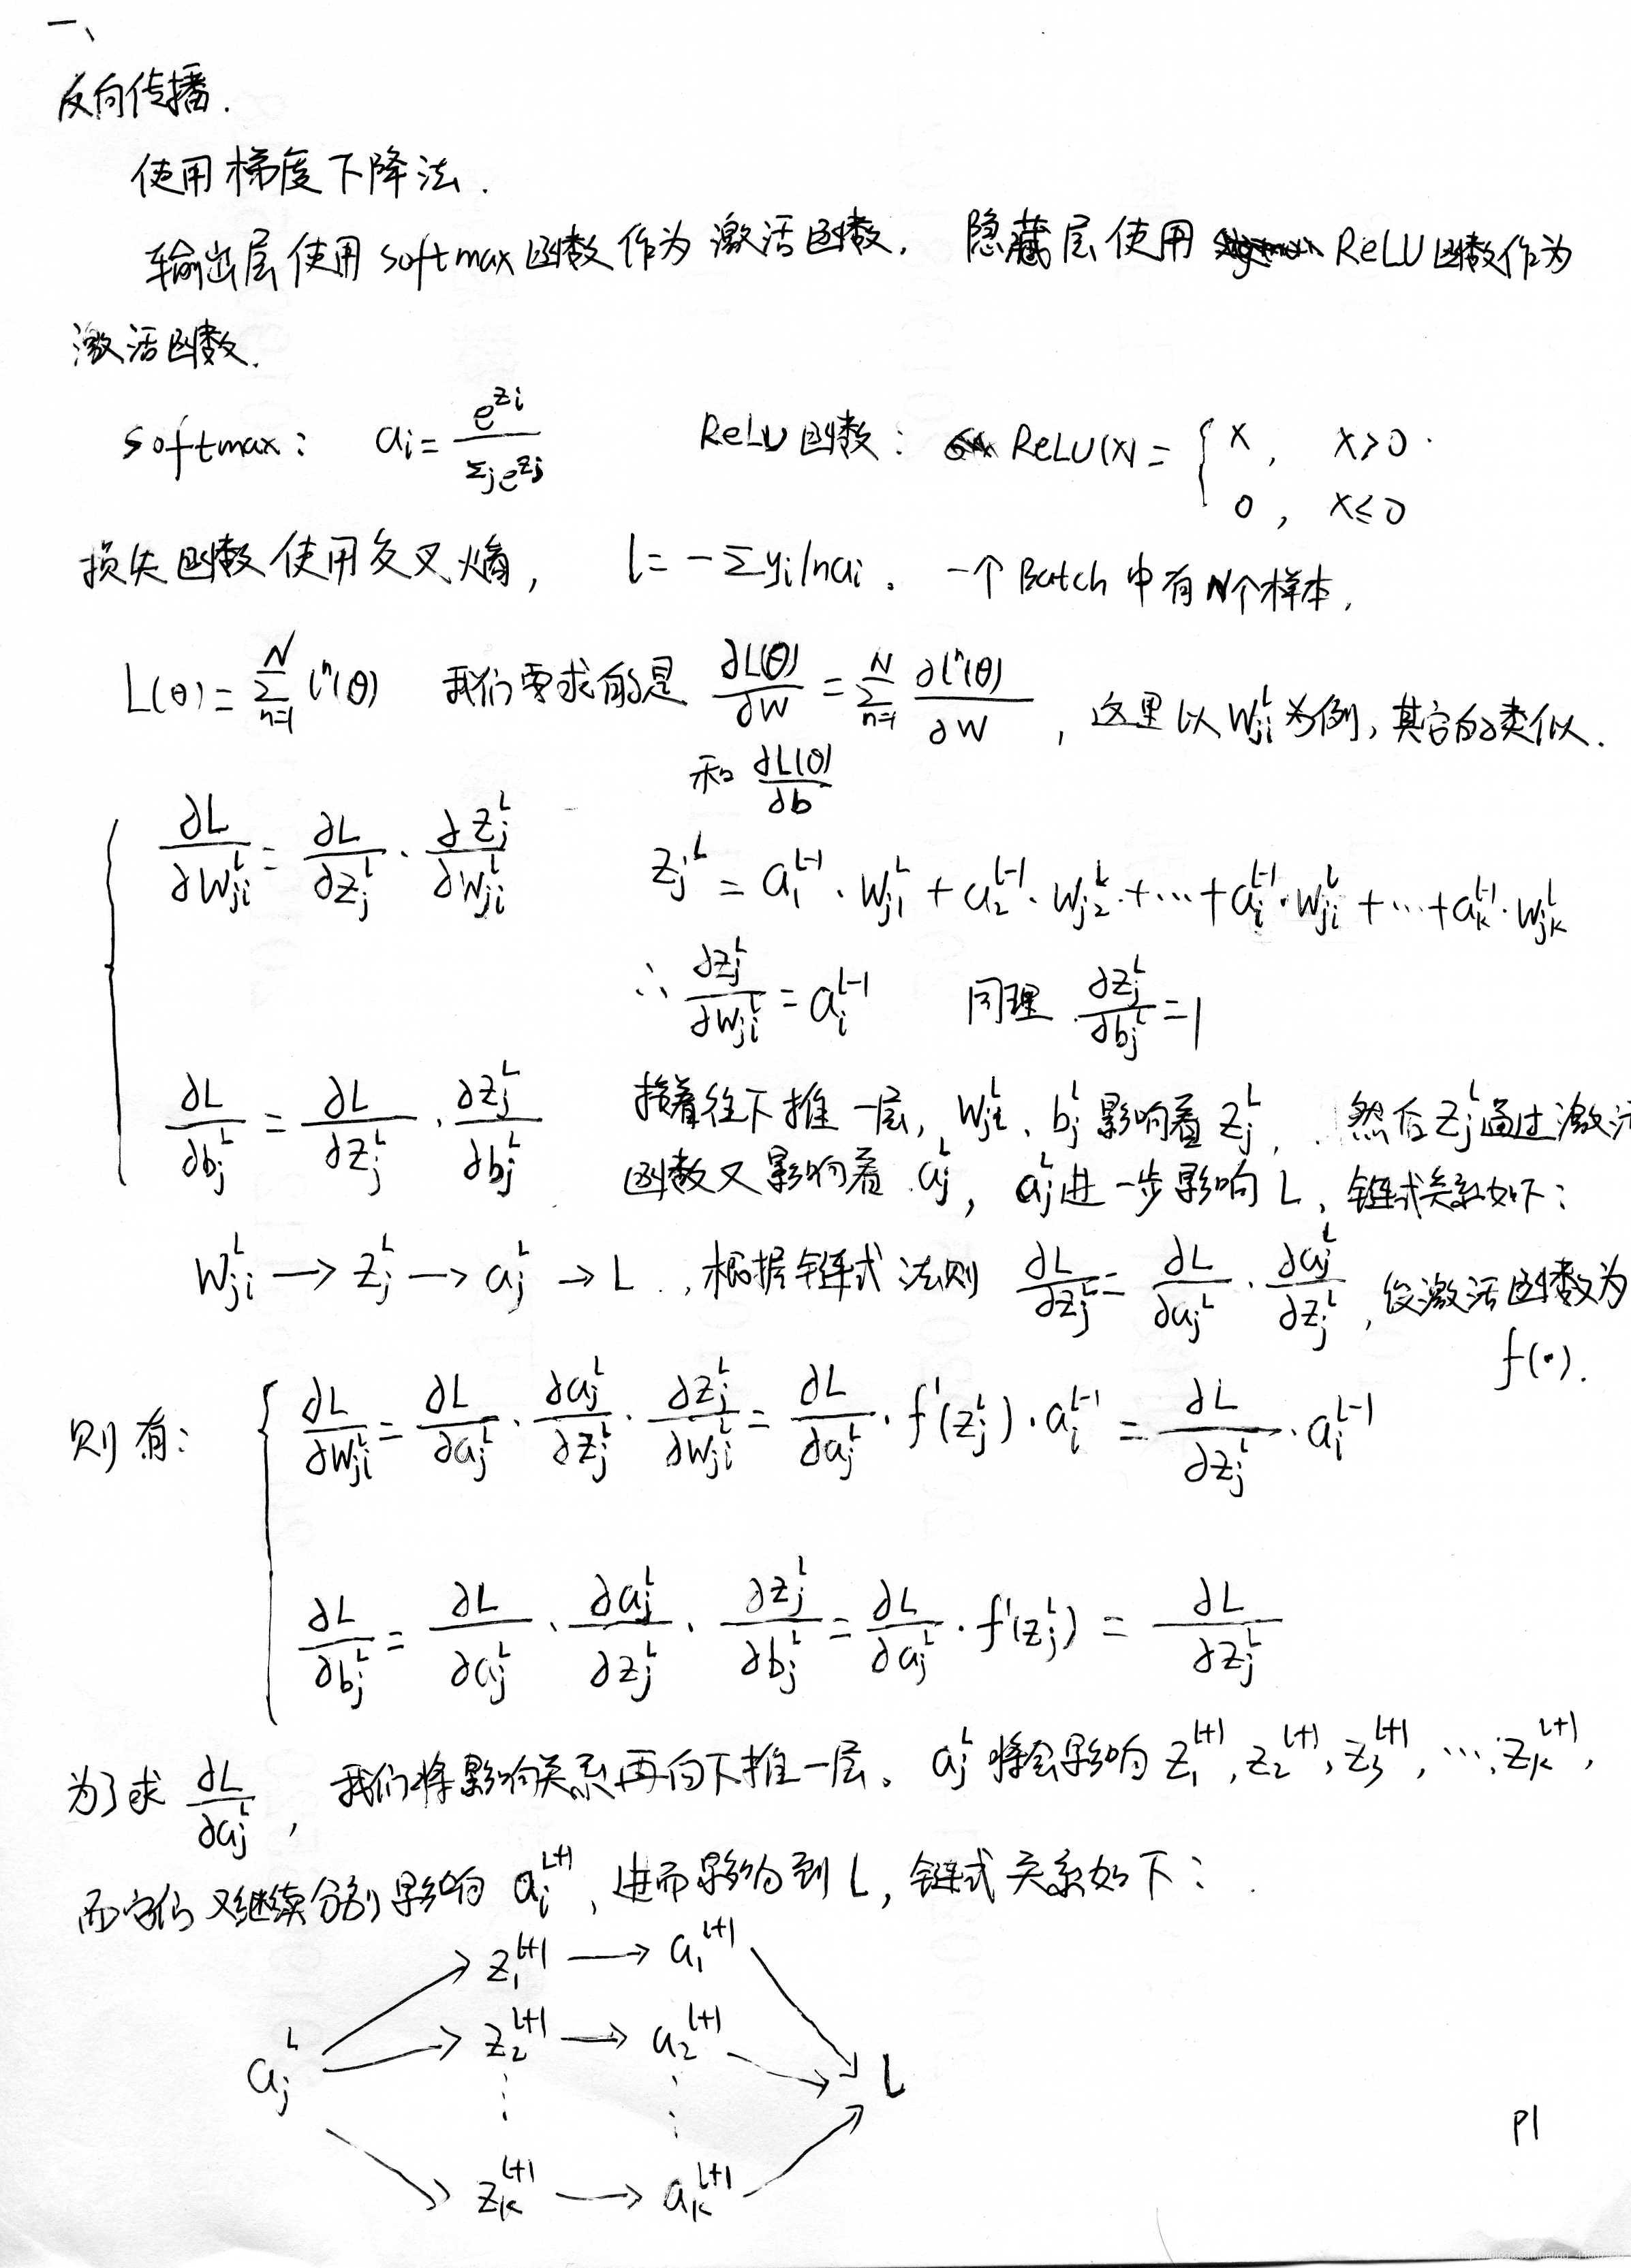 一、
反向传播.
使用梯度下降法.
输出层使用softmax函数作为激活函数, 隐藏层使用 ReLU函数作为
激活函数.
softmax: aᵢ = e^{zᵢ} / Σⱼe^{zⱼ}  ReLU函数: ReLU(x) = { x, x>0 ; 0, x≤0
损失函数使用交叉熵, l = -Σyᵢlnaᵢ。一个Batch中有N个样本,
L(θ) = Σ_{n=1}^{N} lⁿ(θ) 我们要求的是 ∂L(θ)/∂W = Σ_{n=1}^{N} ∂lⁿ(θ)/∂W, 这里以 W_{ji}^{L} 为例, 其它的类似.
和 ∂L(θ)/∂b
∂L/∂W_{ji}^{L} = ∂L/∂z_j^{L} · ∂z_j^{L}/∂W_{ji}^{L}  z_j^{L} = a_1^{L-1}·W_{j1}^{L} + a_2^{L-1}·W_{j2}^{L} + ⋯ + a_i^{L-1}·W_{ji}^{L} + ⋯ + a_k^{L-1}·W_{jk}^{L}
∴ ∂z_j^{L}/∂W_{ji}^{L} = a_i^{L-1} 同理 ∂z_j^{L}/∂b_j^{L} = 1
∂L/∂b_j^{L} = ∂L/∂z_j^{L} · ∂z_j^{L}/∂b_j^{L}  接着往下推一层, W_{ji}^{L}、b_j^{L} 影响着 z_j^{L}, 然后 z_j^{L} 通过激活
函数又影响着 a_j^{L}, a_j^{L} 进一步影响 L, 链式关系如下:
W_{ji}^{L} → z_j^{L} → a_j^{L} → L, 根据链式法则 ∂L/∂z_j^{L} = ∂L/∂a_j^{L} · ∂a_j^{L}/∂z_j^{L}, 设激活函数为
f(·).
则有: { ∂L/∂W_{ji}^{L} = ∂L/∂a_j^{L} · ∂a_j^{L}/∂z_j^{L} · ∂z_j^{L}/∂W_{ji}^{L} = ∂L/∂a_j^{L} · f'(z_j^{L}) · a_i^{L-1} = ∂L/∂z_j^{L} · a_i^{L-1}
∂L/∂b_j^{L} = ∂L/∂a_j^{L} · ∂a_j^{L}/∂z_j^{L} · ∂z_j^{L}/∂b_j^{L} = ∂L/∂a_j^{L} · f'(z_j^{L}) = ∂L/∂z_j^{L}
为了求 ∂L/∂a_j^{L}, 我们将影响关系再向下推一层。a_j^{L} 将会影响 z_1^{L+1}, z_2^{L+1}, z_3^{L+1}, ⋯, z_k^{L+1},
而它们又继续分别影响 a_i^{L+1}, 进而影响到 L, 链式关系如下:
z_1^{L+1} → a_1^{L+1}
z_2^{L+1} → a_2^{L+1}
a_j^{L} L
⋮ ⋮
P1
z_k^{L+1} → a_k^{L+1}